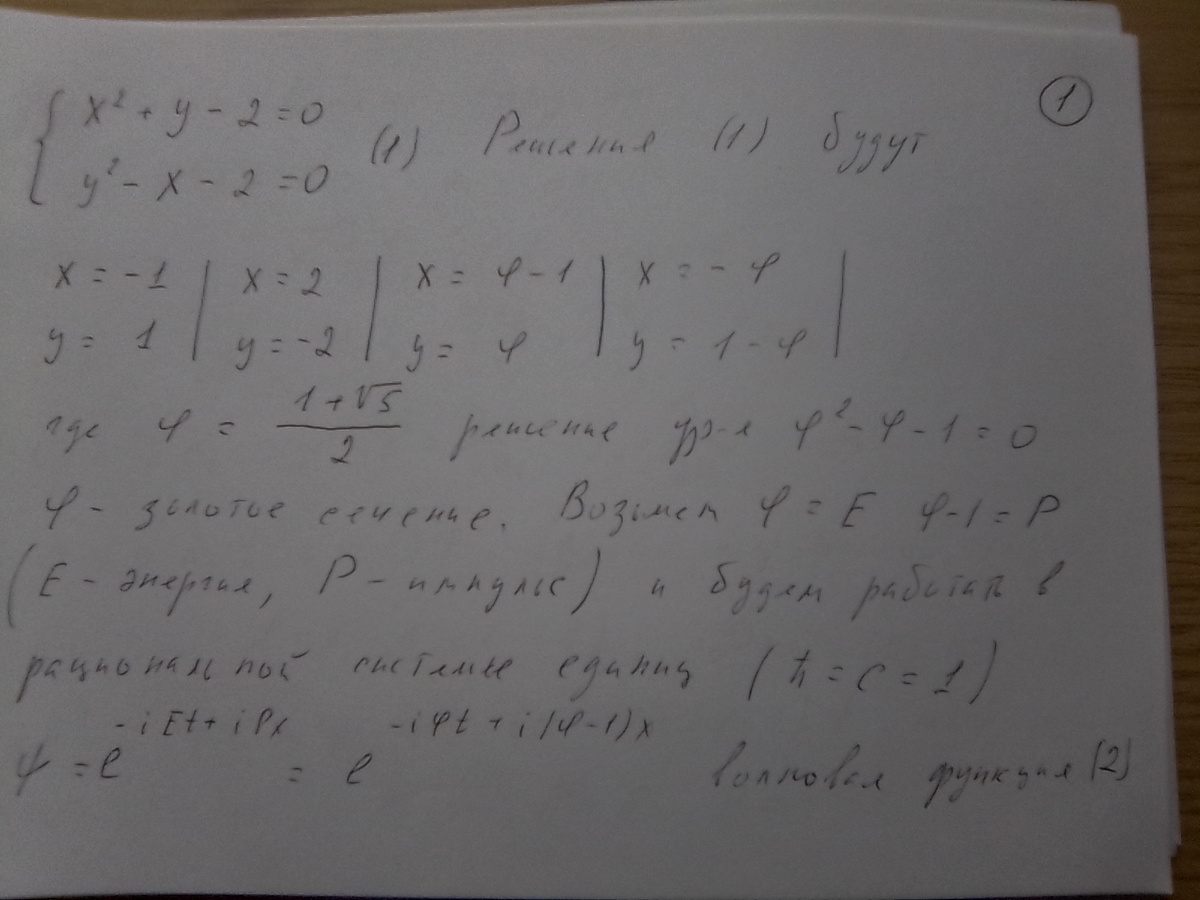 ①
{ x² + y - 2 = 0
{ y² - x - 2 = 0
(1) Решения (1) будут
x = -1 | x = 2 | x = φ - 1 | x = - φ |
y = 1 | y = -2 | y = φ | y = 1 - φ |
где φ = (1 + √5)/2 решение ур-я φ² - φ - 1 = 0
φ - золотое сечение. Возьмем φ = E φ-1 = P
(E - энергия, P - импульс) и будем работать в
рациональной системе единиц (ħ = c = 1)
ψ = e^(-iEt + iPx) = e^(-iφt + i(φ-1)x) волновая функция (2)